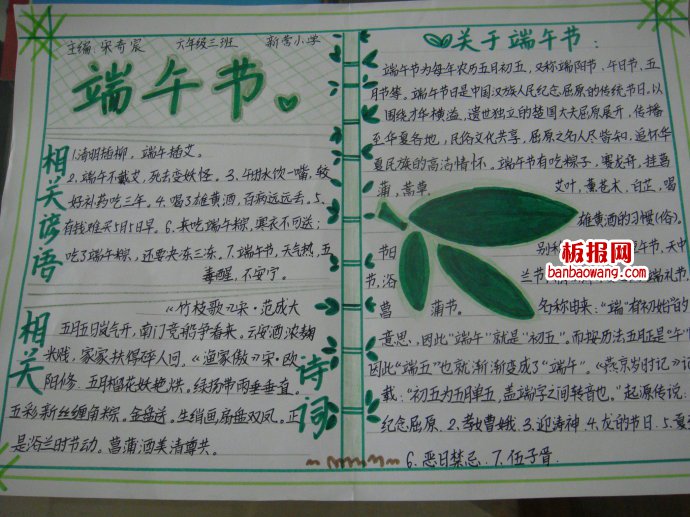 主编:宋奇宸 六年级三班 新营小学
端午节
相关谚语
1.清明插柳,端午插艾。
2.端午不戴艾,死去变妖怪。3.午时水饮一嘴,较
好补药吃三年。4.喝了雄黄酒,百病远远去。5.
有钱难买5月5日旱。6.未吃端午粽,寒衣不可送;
吃了端午粽,还要冻三冻。7.端午节,天气热,五
毒醒,不安宁。
相关诗词
《竹枝歌》宋·范成大
五月五日岚气开,南门竞船争看来。云安酒浓麹
米贱,家家扶得醉人回。《渔家傲》宋·欧
阳修 五月榴花妖艳烘。绿杨带雨垂垂重。
五彩新丝缠角粽。金盘送。生绡画扇盘双凤。正
是浴兰时节动。菖蒲酒美清尊共。
关于端午节:
端午节为每年农历五月初五,又称端阳节,午日节、五
月节等。端午节日是中国汉族人民纪念屈原的传统节日。以
围绕才华横溢、遗世独立的楚国大夫屈原展开,传播
至华夏各地,民俗文化共享,屈原之名人尽皆知,追怀华
夏民族的高洁情怀。端午节有吃粽子,赛龙舟,挂菖
蒲、蒿草、 艾叶,薰苍术、白芷,喝
雄黄酒的习惯(俗)。
节日 别称
午节,天中
节,浴 兰节 端礼节,
菖 蒲节。 名称由来:"端"有初始的
意思,因此"端午"就是"初五"。而按历法五月正是"午"
因此"端五"也就渐渐变成了"端午"。《燕京岁时记》记
载:"初五为五月单五,盖端字之间转音也。"起源传说:
纪念屈原、2.孝女曹娥、3.迎涛神 4.龙的节日、5.夏
6.恶日禁忌、7.伍子胥.
板报网
banbaowang.com